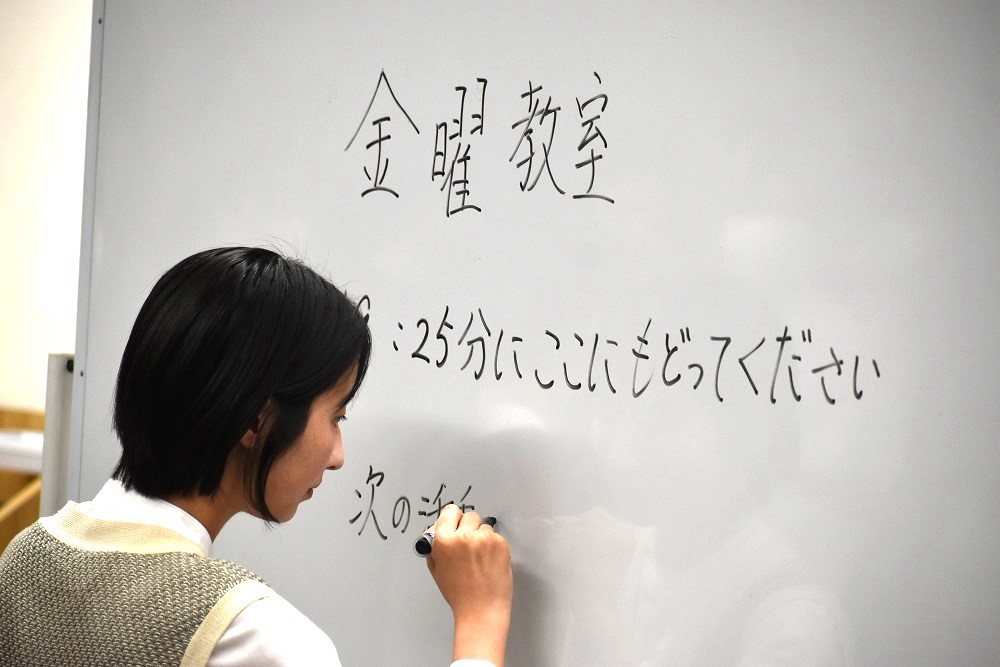 金曜教室
:25分にここにもどってください
次の活